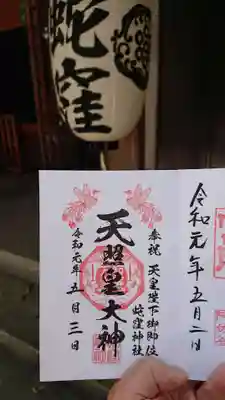 蛇窪
奉祝 天皇陛下御即位
蛇窪神社
天照皇大神
令和元年五月三日
令和元年五月二日